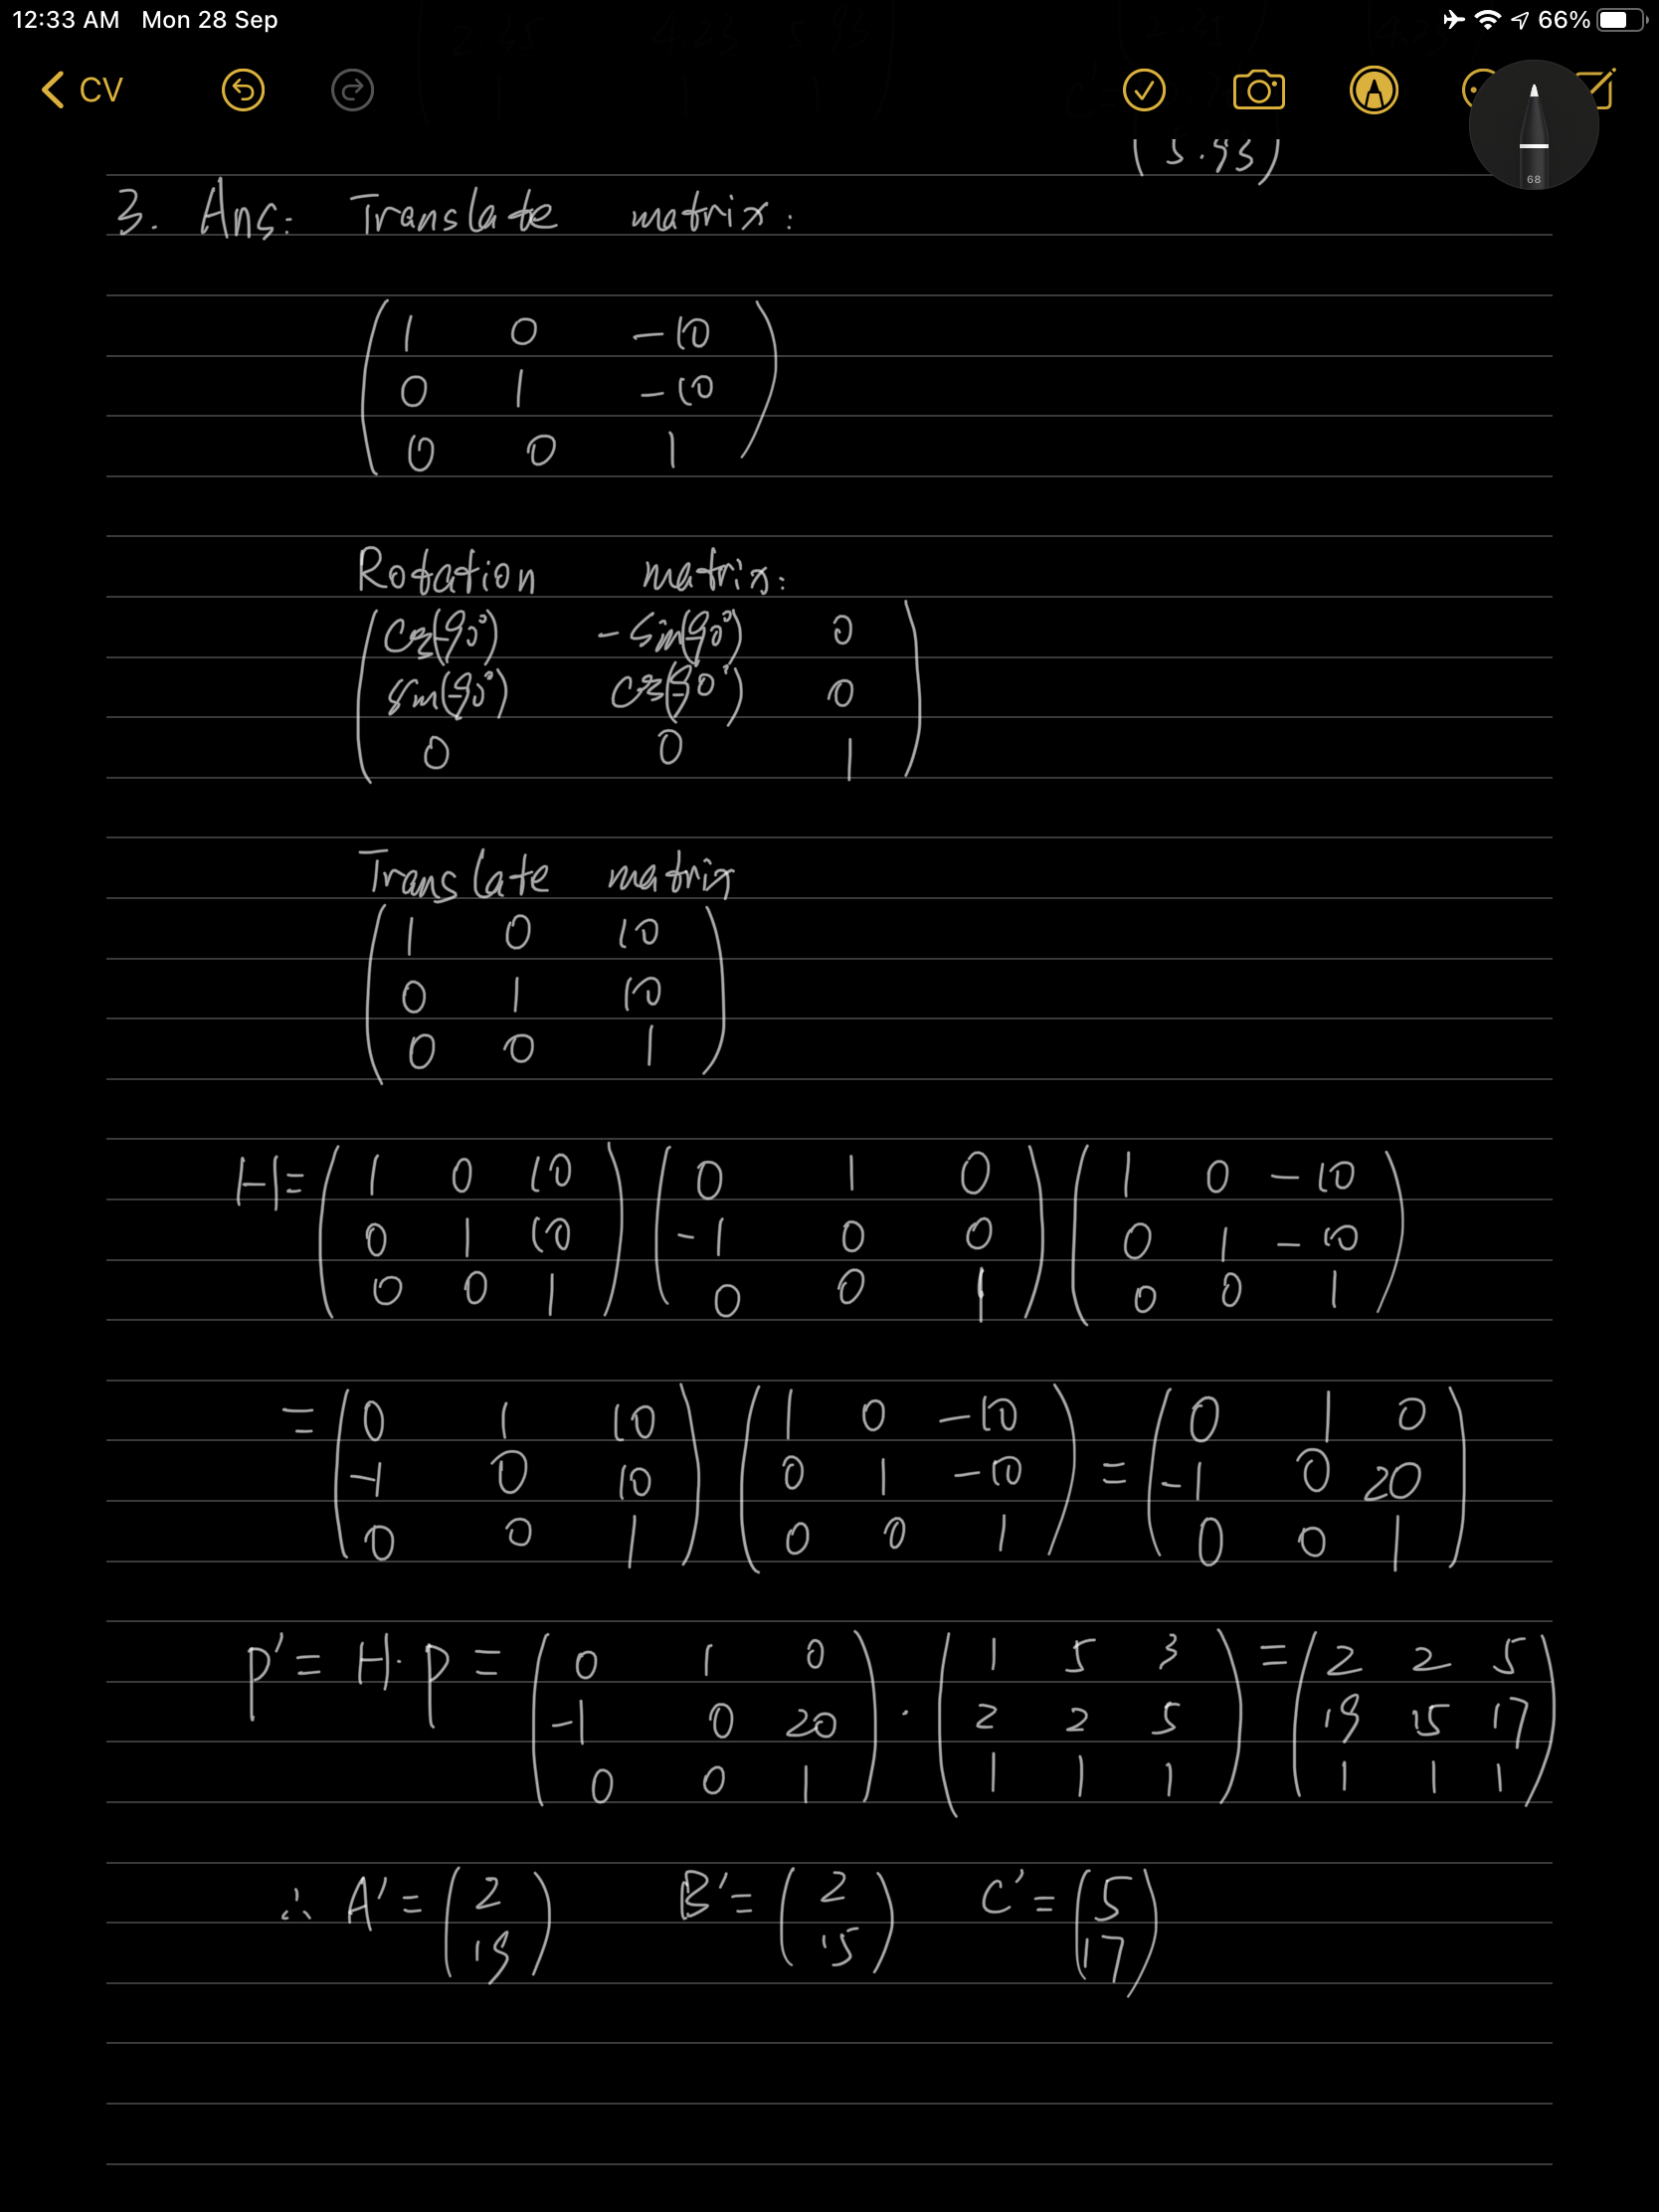 12:33 AM Mon 28 Sep 66%
CV
68
3. Ans: Translate matrix:
1 0 -10
0 1 -10
0 0 1
Rotation matrix:
cos(-90°) -sin(-90°) 0
sin(-90°) cos(-90°) 0
0 0 1
Translate matrix
1 0 10
0 1 10
0 0 1
H = ( 1 0 10 ) ( 0 1 0 ) ( 1 0 -10 )
0 1 10 -1 0 0 0 1 -10
0 0 1 0 0 1 0 0 1
= ( 0 1 10 ) ( 1 0 -10 ) = ( 0 1 0 )
-1 0 10 0 1 -10 -1 0 20
0 0 1 0 0 1 0 0 1
P' = H · P = ( 0 1 0 ) · ( 1 5 3 ) = ( 2 2 5 )
-1 0 20 2 2 5 19 15 17
0 0 1 1 1 1 1 1 1
∴ A' = ( 2 ) B' = ( 2 ) C' = ( 5 )
19 15 17